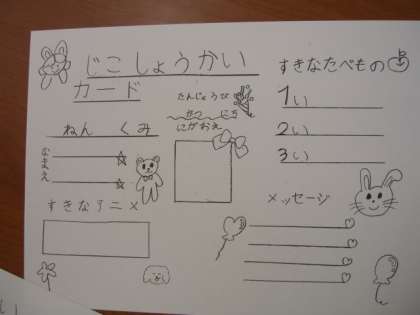 じこしょうかい
カード
ねん くみ
なまえ
すきなアニメ
たんじょうび
がつ にち
にがおえ
すきなたべもの
1い
2い
3い
メッセージ